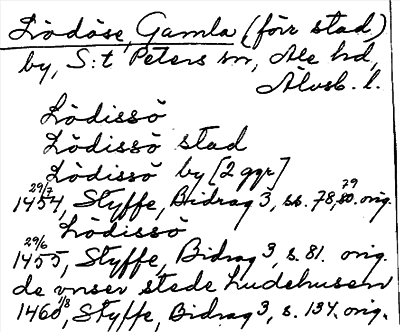 Lödöse, Gamla (förr stad)
by, S:t Peters sn, Ale hd,
Älvsb. l.
Lödissö
Lödissö stad
Lödissö by [2 ggr]
1454 29/7, Styffe, Bidrag 3, ss. 78, 79 orig.
Lödissö
1455 29/6, Styffe, Bidrag 3, s. 81. orig.
de vnser stede Ludehusen
1460 1/3, Styffe, Bidrag 3, s. 134. orig.